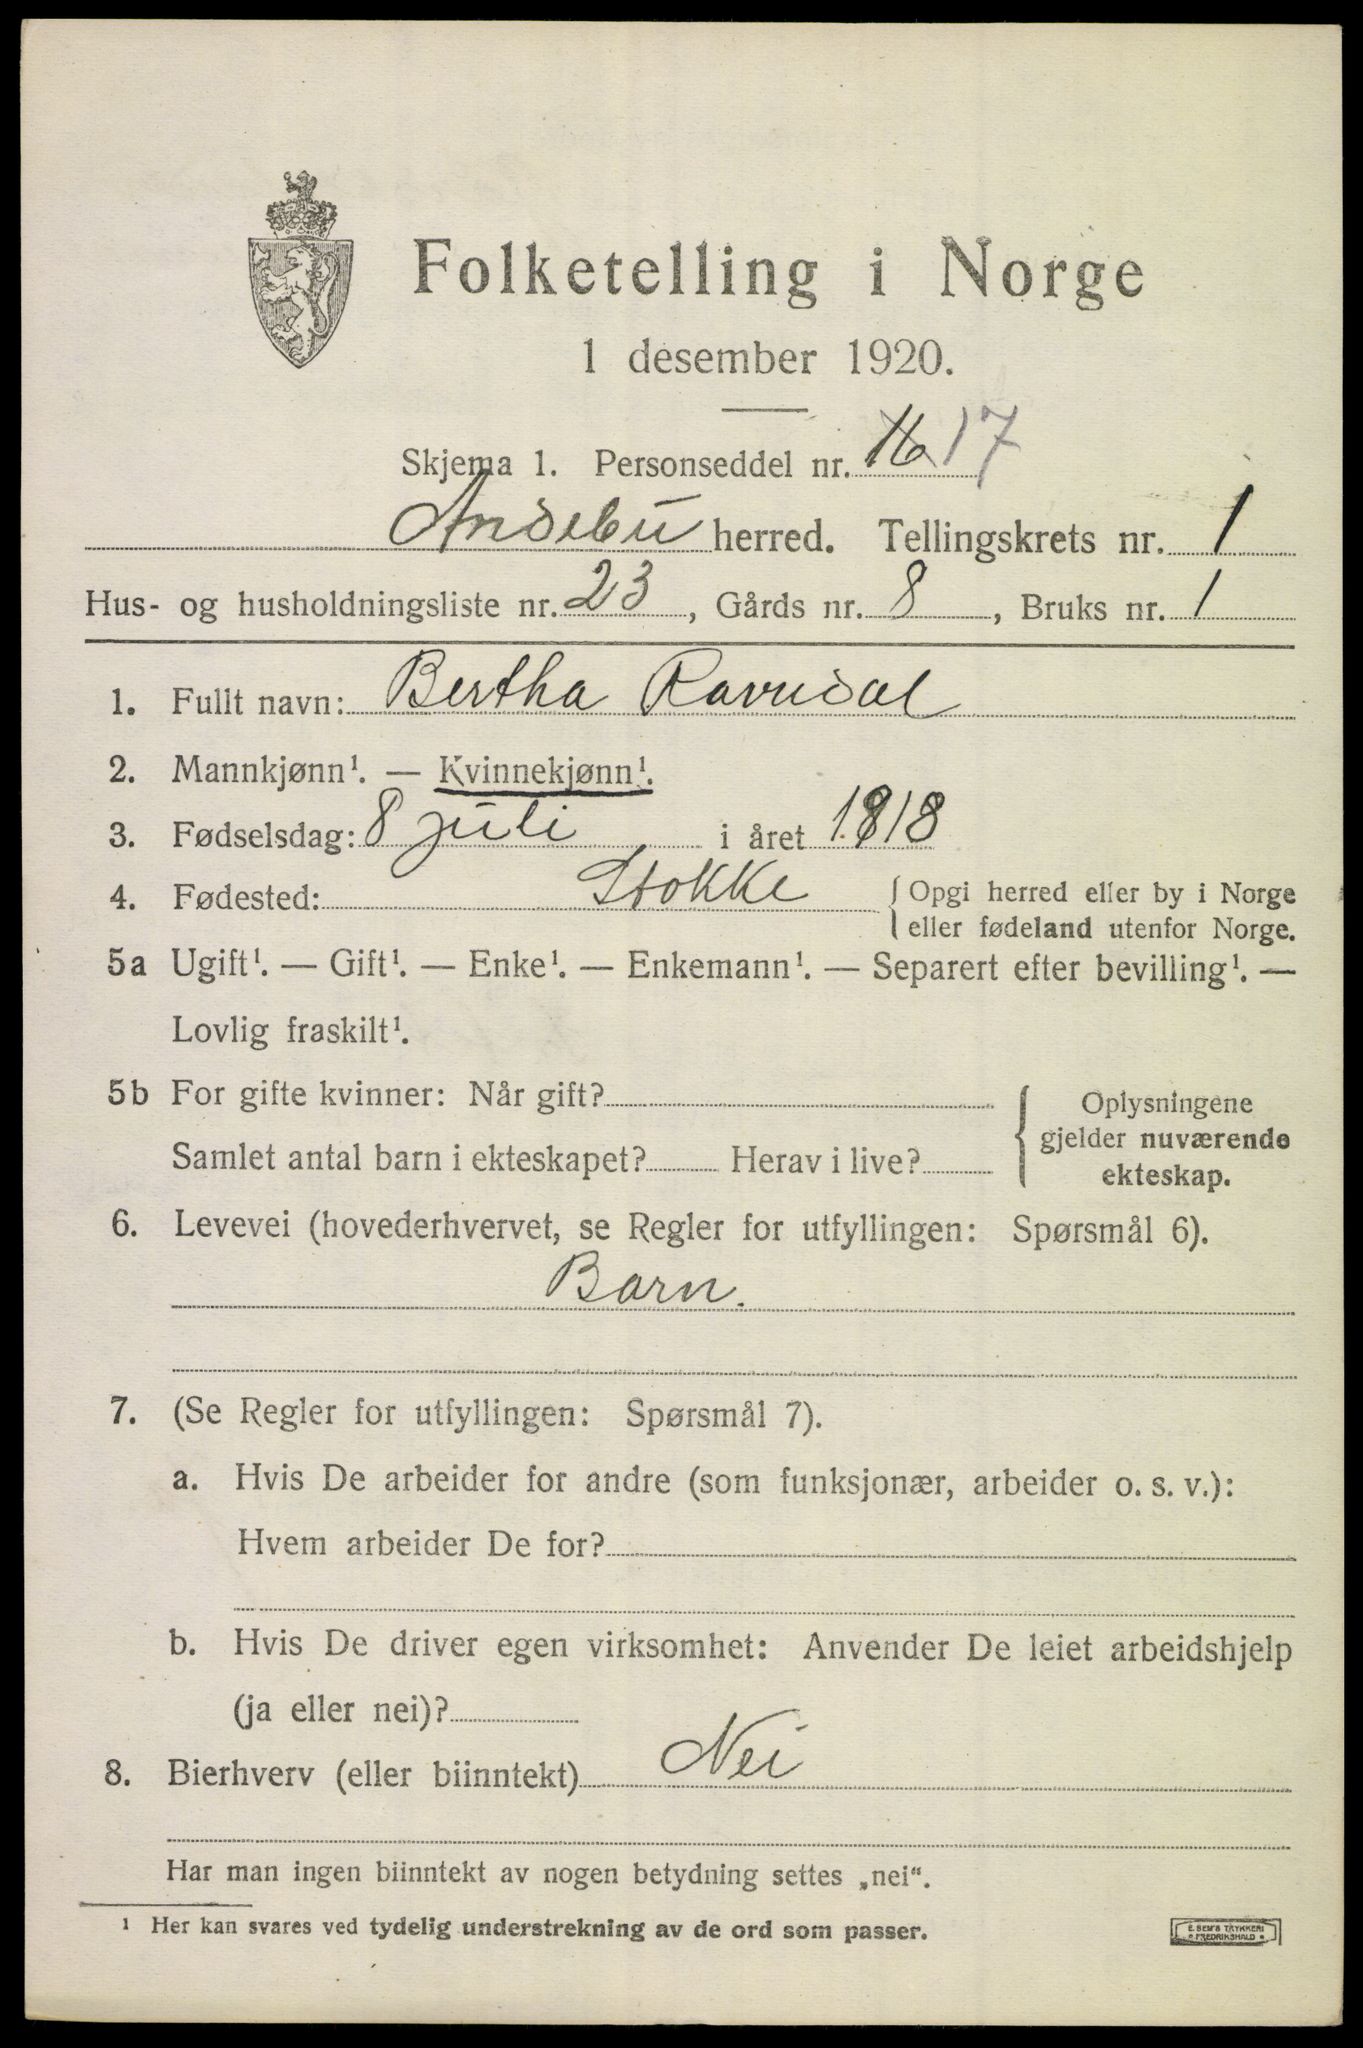 Folketelling i Norge
1 desember 1920.
Skjema 1. Personseddel nr. 16 17
Andebu herred. Tellingskrets nr. 1
Hus- og husholdningsliste nr. 23, Gårds nr. 8, Bruks nr. 1
1. Fullt navn: Bertha Ravndal
2. Mannkjønn¹. — Kvinnekjønn¹.
3. Fødselsdag: 8 juli i året 1918
4. Fødested: Stokke { Opgi herred eller by i Norge
eller fødeland utenfor Norge.
5a Ugift¹. — Gift¹. — Enke¹. — Enkemann¹. — Separert efter bevilling¹. —
Lovlig fraskilt¹.
5b For gifte kvinner: Når gift?
Samlet antal barn i ekteskapet? Herav i live?
{ Oplysningene
gjelder nuværende
ekteskap.
6. Levevei (hovederhvervet, se Regler for utfyllingen: Spørsmål 6).
Barn.
7. (Se Regler for utfyllingen: Spørsmål 7).
a. Hvis De arbeider for andre (som funksjonær, arbeider o. s. v.):
Hvem arbeider De for?
b. Hvis De driver egen virksomhet: Anvender De leiet arbeidshjelp
(ja eller nei)?
8. Bierhverv (eller biinntekt) Nei
Har man ingen biinntekt av nogen betydning settes „nei“.
¹ Her kan svares ved tydelig understrekning av de ord som passer.
E. SEM'S TRYKKERI
FREDRIKSHALD